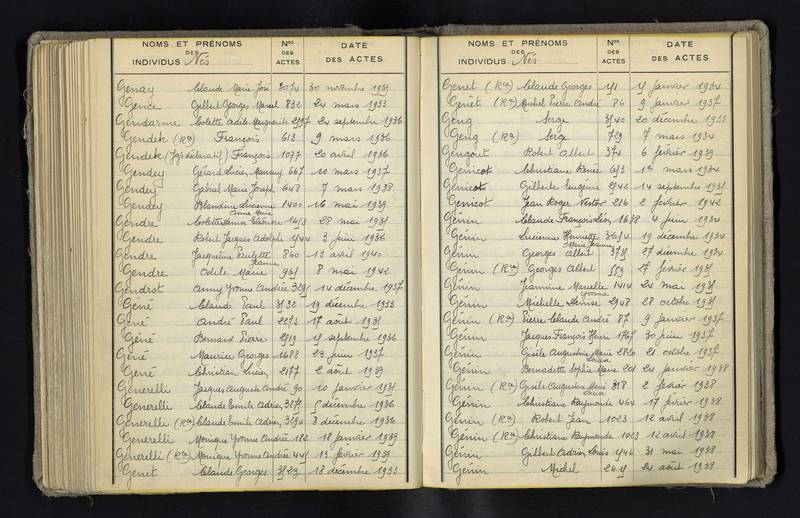 NOMS ET PRÉNOMS
DES
INDIVIDUS Nés
Nos
DES
ACTES
DATE
DES ACTES
Genay Claude Marie José 3074 30 novembre
Gence Gilbert Georges Marcel 832 24 mars 1933
Gendarme Colette Adèle Marguerite 24 septembre 1936
Gendek (Ron) François 613 9 mars 1936
Gendek (Jgt déclaratif) François 1077 20 avril 1936
Gendey Gérard Lucien 667 10 mars 1937
Gendey Gabriel Marie Joseph 648 7 mars 1938
Gendey Blandine Lucienne 1400 16 mai 1939
Anne Marie
Gendre Colette 28 mai
Gendre Robert Jacques Adolphe 3 juin 1936
Gendre Jacqueline Paulette 860 13 avril 1940
Jeanne
Gendre Odile Marie 8 mai 1942
Gendrot Anny Yvonne Andrée 14 décembre 1937
Gené Claude Paul 19 décembre 1933
Gené André Paul 2273 17 août
Géné Bernard Pierre septembre 1936
Gené Maurice Georges 1688 29 juin 1937
Gené Christian Lucien 2177 2 août 1939
Generelli Jacques Auguste André 90 10 janvier
Generelli Claude Emile Adrien décembre 1936
Generelli (Ron) Claude Emile Adrien 3294 8 décembre 1936
Generelli Monique Yvonne Andrée 182 18 janvier 1939
Generelli (Ron) Monique Yvonne Andrée 13 février 1939
Genet Claude Georges 18 décembre 1933
NOMS ET PRÉNOMS
DES
INDIVIDUS Nés
Nos
DES
ACTES
DATE
DES ACTES
Genet (Ron) Claude Georges janvier 1934
Genet (Ron) Michel Pierre André 86 9 janvier 1937
Geng Serge 20 décembre 1933
Geng (Ron) Serge 7 mars 1934
Gengout Robert Albert 374 6 février 1939
Genicot Christiane Renée 1er mars 1934
Genicot Gilberte Eugénie 14 septembre
Genicot Jean Roger Nestor 216 2 février 1942
Génin Claude François Léon 4 juin 1934
Génin Lucienne Henriette 19 décembre 1934
Marie Jeanne
Génin Georges Albert 27 décembre 1934
Génin (Ron) Georges Albert 27 février
Génin Jeannine Marcelle 1414 24 mai
Yvonne
Génin Michelle Denise 2948 28 octobre
Génin (Ron) Pierre Claude André 87 9 janvier 1937
Génin Jacques François Henri 1767 30 juin 1937
Génin Gisèle Augustine Marie 2820 21 octobre 1937
Louise
Génin Bernadette Sophie Marie 201 24 janvier 1938
Génin (Ron) Gisèle Augustine Marie 318 2 février 1938
Louise
Génin Christiane Raymonde 464 17 février 1938
Génin (Ron) Robert Jean 1023 12 avril 1938
Génin (Ron) Christiane Raymonde 12 avril 1938
Génin Gilbert Adrien Louis 31 mai 1938
Génin Michel 24 août 1938